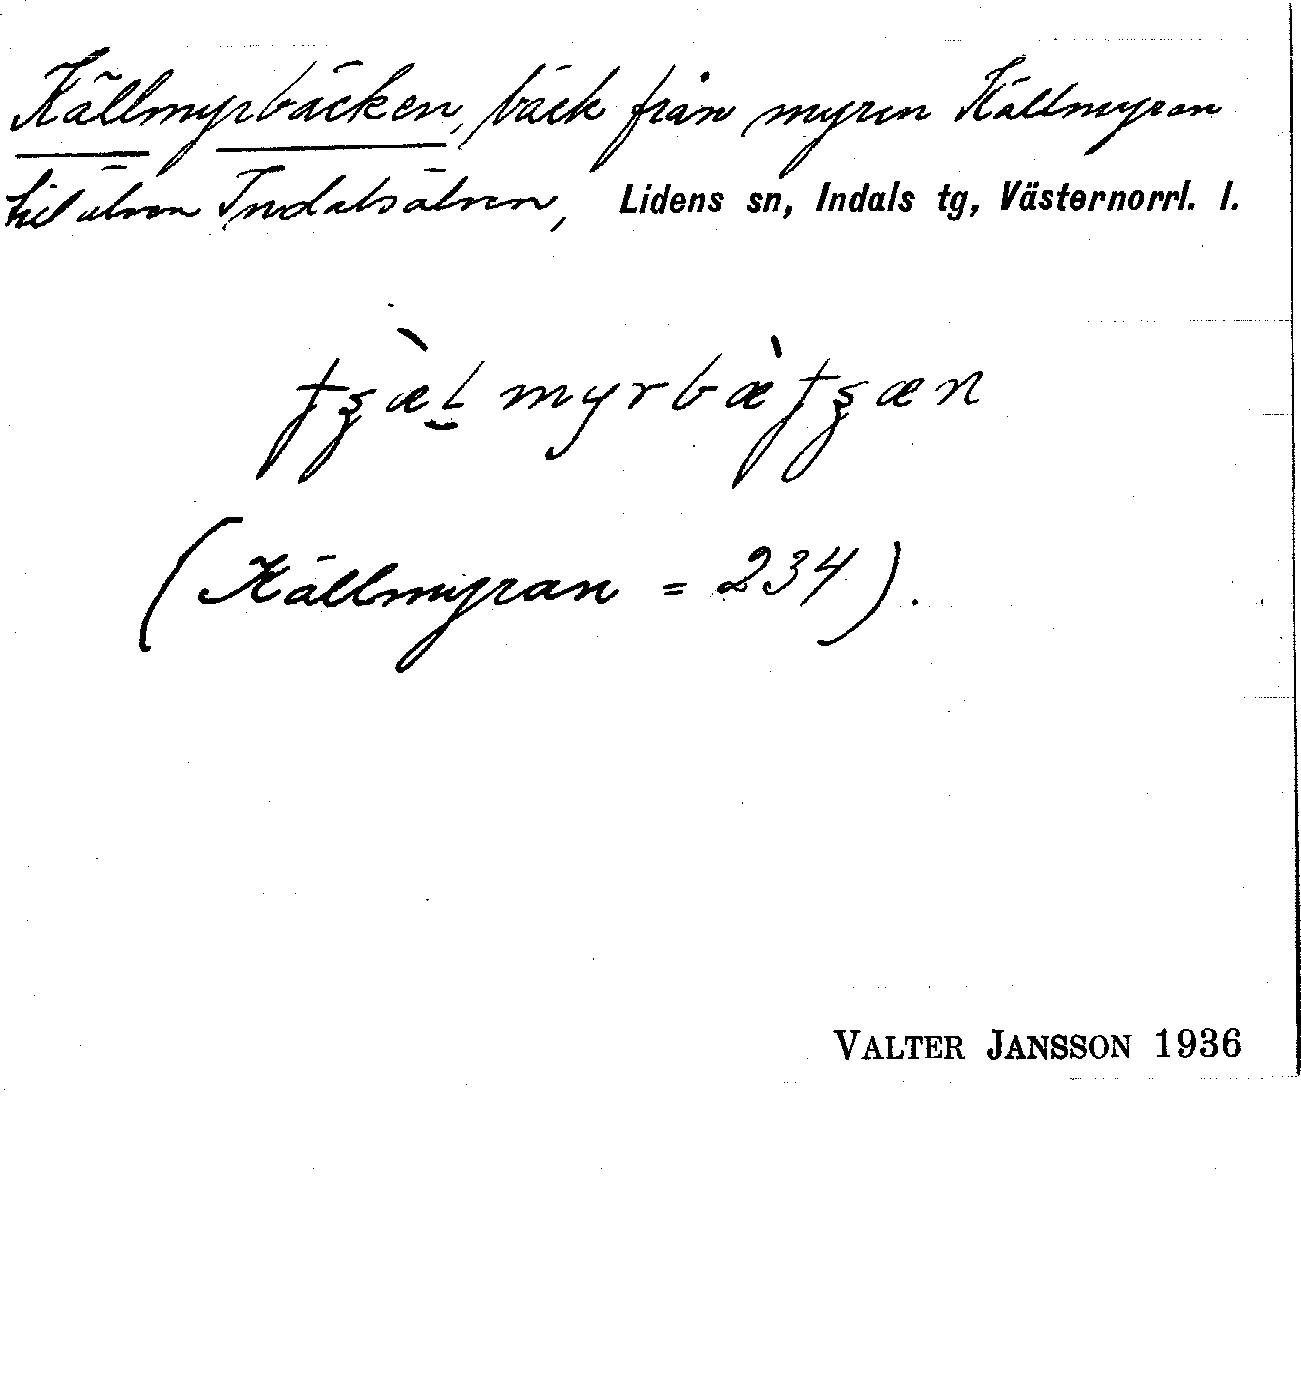 Källmyrbäcken, bäck från myren Källmyran
till älven Indalsälven, Lidens sn, Indals tg, Västernorrl. l.
tʂæ̀l myrbæ̀tʂæn
(Källmyran = 234).
VALTER JANSSON 1936